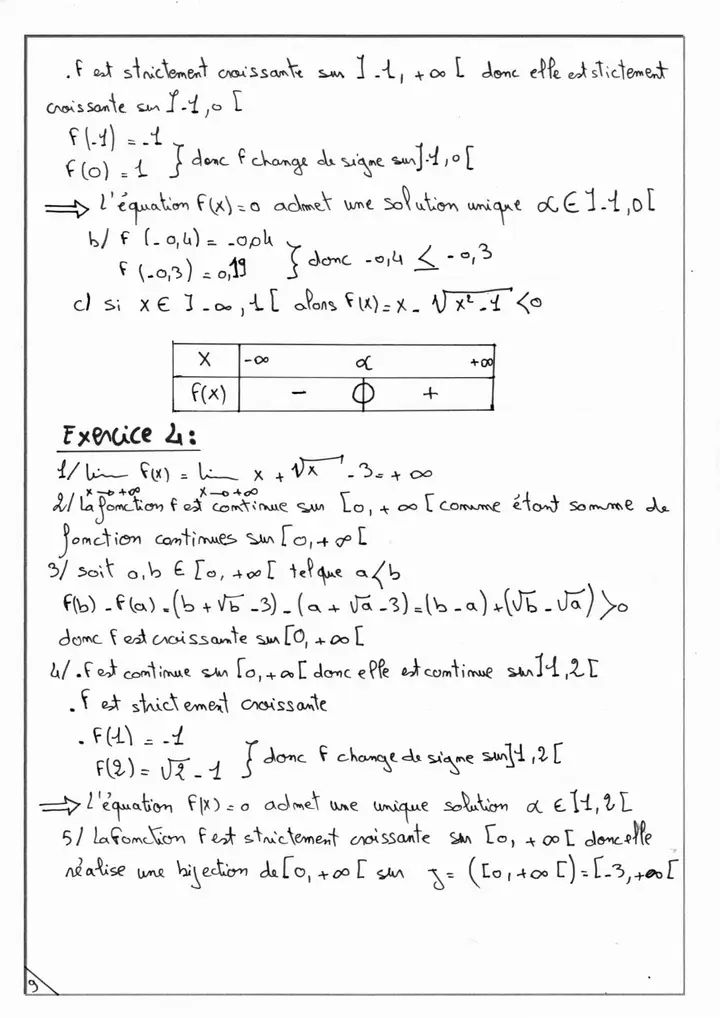 . f est strictement croissante sur ]-1, +∞[ donc elle est stictement
croissante sur ]-1,0[
f(-1) = -1
f(0) = 1 } donc f change de signe sur ]-1,0[
⟹ l'équation f(x)=0 admet une solution unique α ∈ ]-1,0[
b/ f (-0,4) = -0,04
f (-0,3) = 0,19 } donc -0,4 ≤ -0,3
c) si x ∈ ]-∞,1[ alors f(x) = x - √x²-1 <0
x | -∞ α +∞
f(x) | - 0 +
Exercice 4:
1/ lim f(x) = lim x + √x - 3 = +∞
x→+∞ x→+∞
2/ la fonction f est continue sur [0,+∞[ comme étant somme de
fonction continues sur [0,+∞[
3/ soit a,b ∈ [0,+∞[ tel que a<b
f(b) - f(a) = (b + √b - 3) - (a + √a - 3) = (b - a) + (√b - √a) >0
donc f est croissante sur [0,+∞[
4/ . f est continue sur [0,+∞[ donc elle est continue sur ]1,2[
. f est strictement croissante
. f(1) = -1
f(2) = √2 - 1 } donc f change de signe sur ]1,2[
⟹ l'équation f(x) = 0 admet une unique solution α ∈ ]1,2[
5/ La fonction f est strictement croissante sur [0, +∞[ donc elle
réalise une bijection de [0,+∞[ sur J = ([0,+∞[) = [-3,+∞[
9